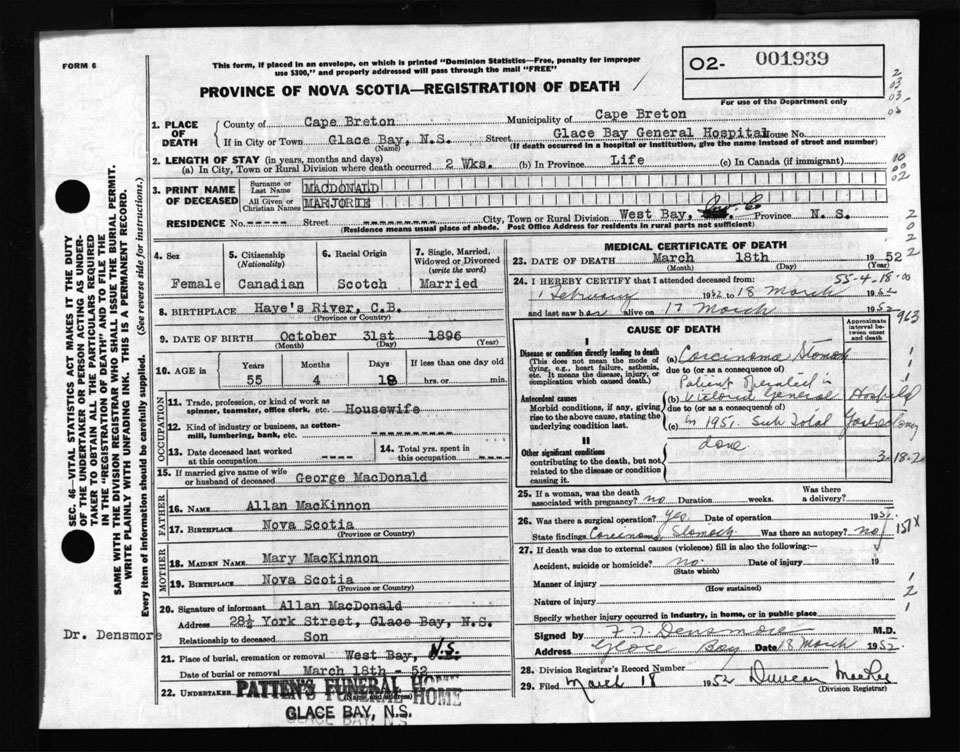 FORM 6
This form, if placed in an envelope, on which is printed "Dominion Statistics—Free, penalty for improper
use $300," and properly addressed will pass through the mail "FREE"
PROVINCE OF NOVA SCOTIA—REGISTRATION OF DEATH
O2- 001939
For use of the Department only
1. PLACE OF DEATH
County of Cape Breton Municipality of Cape Breton
If in City or Town Glace Bay, N.S. Street Glace Bay General Hospital House No.
(Name) (If death occurred in a hospital or institution, give the name instead of street and number)
2. LENGTH OF STAY (in years, months and days)
(a) In City, Town or Rural Division where death occurred 2 Wks. (b) In Province Life (c) In Canada (if immigrant)
3. PRINT NAME OF DECEASED
Surname or Last Name MACDONALD
All Given or Christian Names MARJORIE
RESIDENCE No. ----- Street -------- City, Town or Rural Division West Bay, Province N. S.
(Residence means usual place of abode. Post Office Address for residents in rural parts not sufficient)
4. Sex
Female
5. Citizenship
(Nationality)
Canadian
6. Racial Origin
Scotch
7. Single, Married,
Widowed or Divorced
(write the word)
Married
8. BIRTHPLACE Haye's River, C.B.
(Province or Country)
9. DATE OF BIRTH October 31st 1896
(Month) (Day) (Year)
10. AGE in
Years Months Days If less than one day old
55 4 18 hrs. or min.
OCCUPATION
11. Trade, profession, or kind of work as
spinner, teamster, office clerk, etc. Housewife
12. Kind of industry or business, as cotton-
mill, lumbering, bank, etc. ----------
13. Date deceased last worked
at this occupation ----
14. Total yrs. spent in
this occupation ----
15. If married give name of wife
or husband of deceased George MacDonald
FATHER
16. NAME Allan MacKinnon
17. BIRTHPLACE Nova Scotia
(Province or Country)
MOTHER
18. MAIDEN NAME Mary MacKinnon
19. BIRTHPLACE Nova Scotia
(Province or Country)
20. Signature of informant Allan MacDonald
Address 28½ York Street, Glace Bay, N.S.
Relationship to deceased Son
Dr. Densmore
21. Place of burial, cremation or removal West Bay, N.S.
Date of burial or removal March 18th - 52
22. UNDERTAKER PATTEN'S FUNERAL HOME
(Name and address)
GLACE BAY, N.S.
MEDICAL CERTIFICATE OF DEATH
23. DATE OF DEATH March 18th 1952
(Month) (Day) (Year)
55-4-18-00
24. I HEREBY CERTIFY that I attended deceased from:
1 February 1952 to 18 March 1952
and last saw her alive on 17 March 1952
963
CAUSE OF DEATH
Approximate
interval between
onset
and death
I
Disease or condition directly leading to death
(This does not mean the mode of
dying, e.g., heart failure, asthenia,
etc. It means the disease, injury, or
complication which caused death.)
(a) Carcinoma Stomach
due to (or as a consequence of)
Patient Operated in
Antecedent causes
Morbid conditions, if any, giving
rise to the above cause, stating the
underlying condition last.
(b) Victoria General Hospital
due to (or as a consequence of)
(c) in 1951 Sub Total Gastrectomy
done
3-18-2
II
Other significant conditions
contributing to the death, but not
related to the disease or condition
causing it.
25. If a woman, was the death
associated with pregnancy? no Duration weeks. Was there
a delivery?
26. Was there a surgical operation? Yes. Date of operation 1951
State findings Carcinoma Stomach Was there an autopsy? no
151X
27. If death was due to external causes (violence) fill in also the following:—
Accident, suicide or homicide? no. Date of injury 19
(State which)
Manner of injury
(How sustained)
Nature of injury
Specify whether injury occurred in industry, in home, or in public place
Signed by Densmore M.D.
Address Glace Bay Date 18 March 1952
28. Division Registrar's Record Number
29. Filed March 18 1952 Duncan
(Division Registrar)
SEC. 46—VITAL STATISTICS ACT MAKES IT THE DUTY
OF THE UNDERTAKER OR PERSON ACTING AS UNDER-
TAKER TO OBTAIN ALL THE PARTICULARS REQUIRED
IN THE "REGISTRATION OF DEATH" AND TO FILE THE
SAME WITH THE DIVISION REGISTRAR WHO SHALL ISSUE THE BURIAL PERMIT.
WRITE PLAINLY WITH UNFADING INK. THIS IS A PERMANENT RECORD.
Every item of information should be carefully supplied. (See reverse side for instructions.)